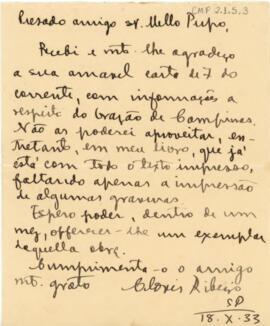 CMP 2.1.5.3
Presado amigo sr. Mello Pupo,
Recebi e mt. lhe agradeço
a sua amavel carta de 7 do
corrente, com informações a
respeito do Brazão de Campinas.
Não as poderei aproveitar, en-
tretanto, em meu livro, que já
está com todo o texto impresso,
faltando apenas a impressão
de algumas gravuras.
Espero poder, dentro de um
mez, offerecer-lhe um exemplar
daquella obra.
Cumprimenta-o o amigo
mt. grato Clovis Ribeiro
SP
18.X.33